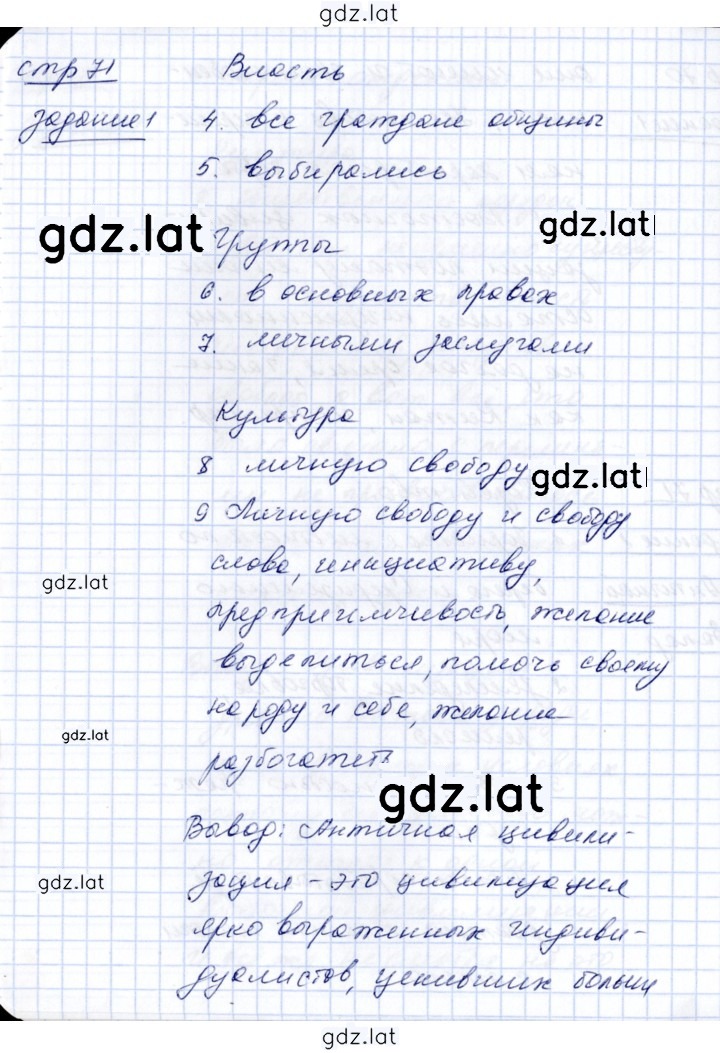 gdz.lat
стр 71 Власть
задание 1 4. все граждане общины
5. выбирались
gdz.lat gdz.lat
Группы
6. в основных правах
7. личными заслугами
Культура
8 личную свободу
gdz.lat
9 Личную свободу и свободу
слова, инициативу,
gdz.lat
предприимчивость, желание
выделиться, помочь своему
народу и себе, желание
gdz.lat
разбогатеть
gdz.lat
Вывод: Античная цивили-
зация - это цивилизация
gdz.lat
ярко выраженных индиви-
дуалистов, ценивших больши
gdz.lat